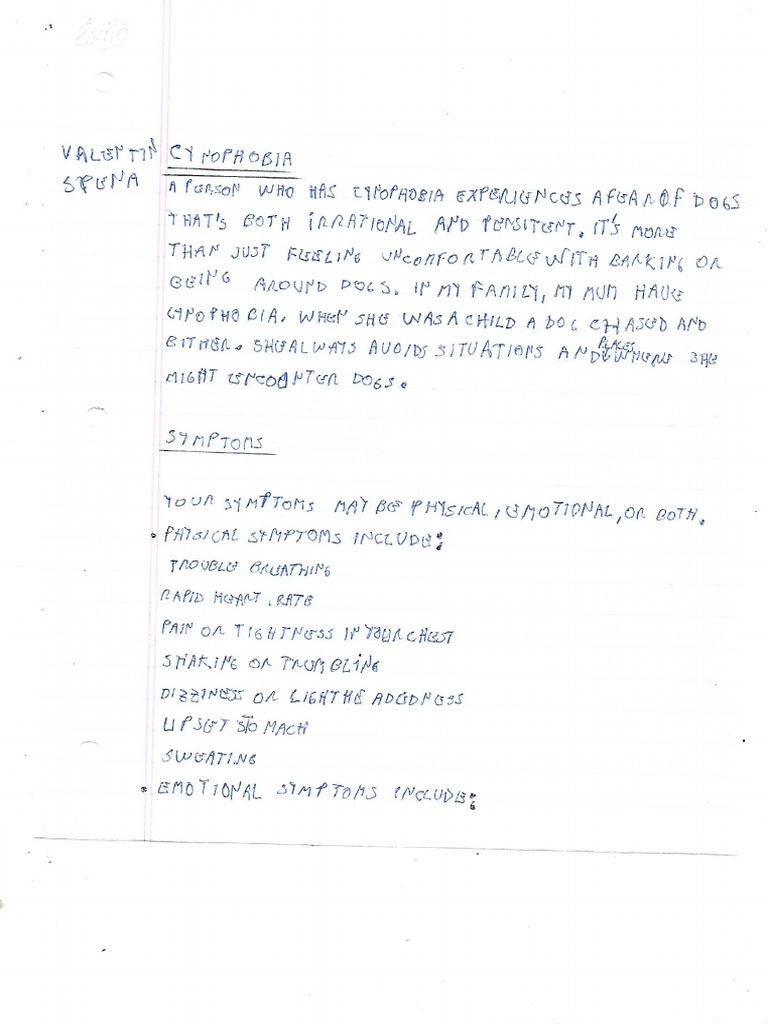 Éxito
VALENTIN
SPENA
CYNOPHOBIA
A PERSON WHO HAS CYNOPHOBIA EXPERIENCES A FEAR OF DOGS
THAT'S BOTH IRRATIONAL AND PERSITENT. IT'S MORE
THAN JUST FEELING UNCOMFORTABLE WITH BARKING OR
BEING AROUND DOGS. IN MY FAMILY, MY MUM HAVE
CYNOPHOBIA. WHEN SHE WAS A CHILD A DOG CHASED AND
BITHER. SHE ALWAYS AVOIDS SITUATIONS AND PLACES WHERE SHE
MIGHT ENCOUNTER DOGS.
SYMPTOMS
YOUR SYMPTOMS MAY BE PHYSICAL, EMOTIONAL, OR BOTH.
• PHYSICAL SYMPTOMS INCLUDE:
TROUBLE BREATHING
RAPID HEART. RATE
PAIN OR TIGHTNESS IN YOUR CHEST
SHAKING OR TRUMBLING
DIZZINESS OR LIGHTHEADEDNESS
UPSET STOMACH
SWEATING
• EMOTIONAL SYMPTOMS INCLUDE: